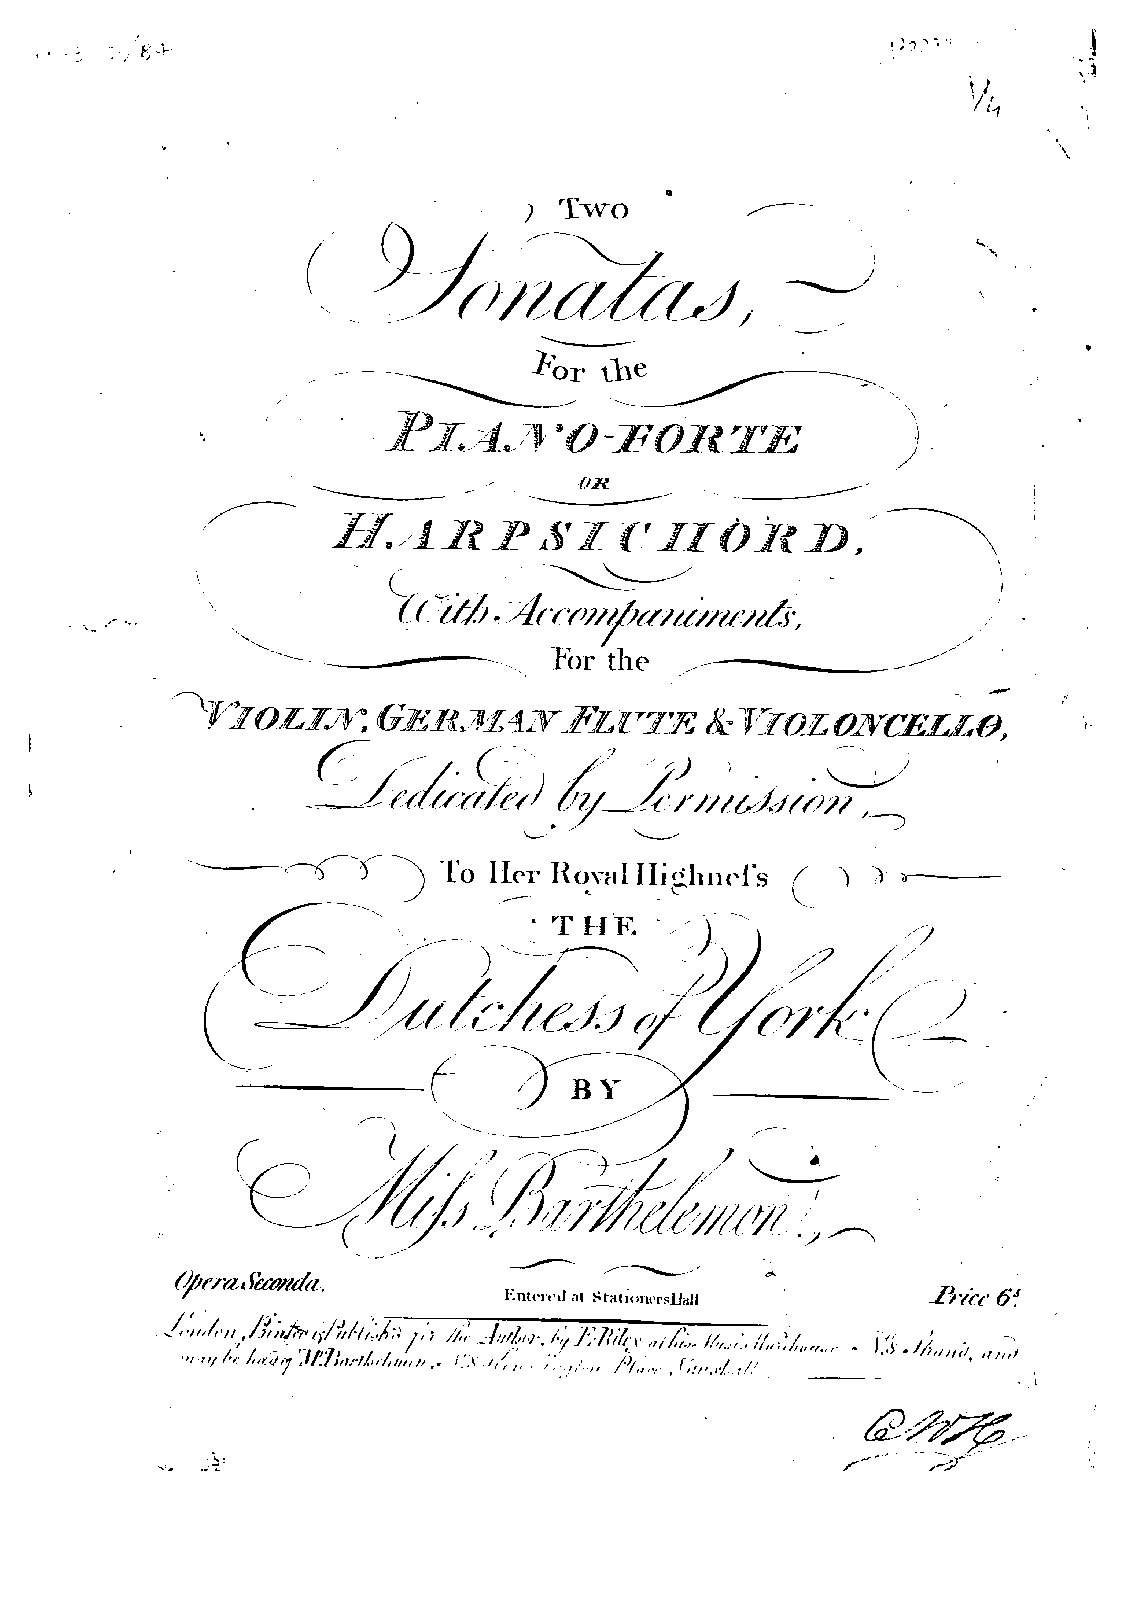 Two
Sonatas,
For the
PIANO-FORTE
OR
HARPSICHORD,
With Accompaniments,
For the
VIOLIN, GERMAN FLUTE & VIOLONCELLO,
Dedicated by Permission,
To Her Royal Highneſs
THE
Dutchess of York
BY
Miſs Barthelemon,
Opera Seconda.
Entered at Stationers Hall
Price 6s.
London, Printed & Publish'd for the Author, by F. Riley at his Music Warehouse Strand, and
may be had of Mr. Barthelemon Place Vauxhall
CWH